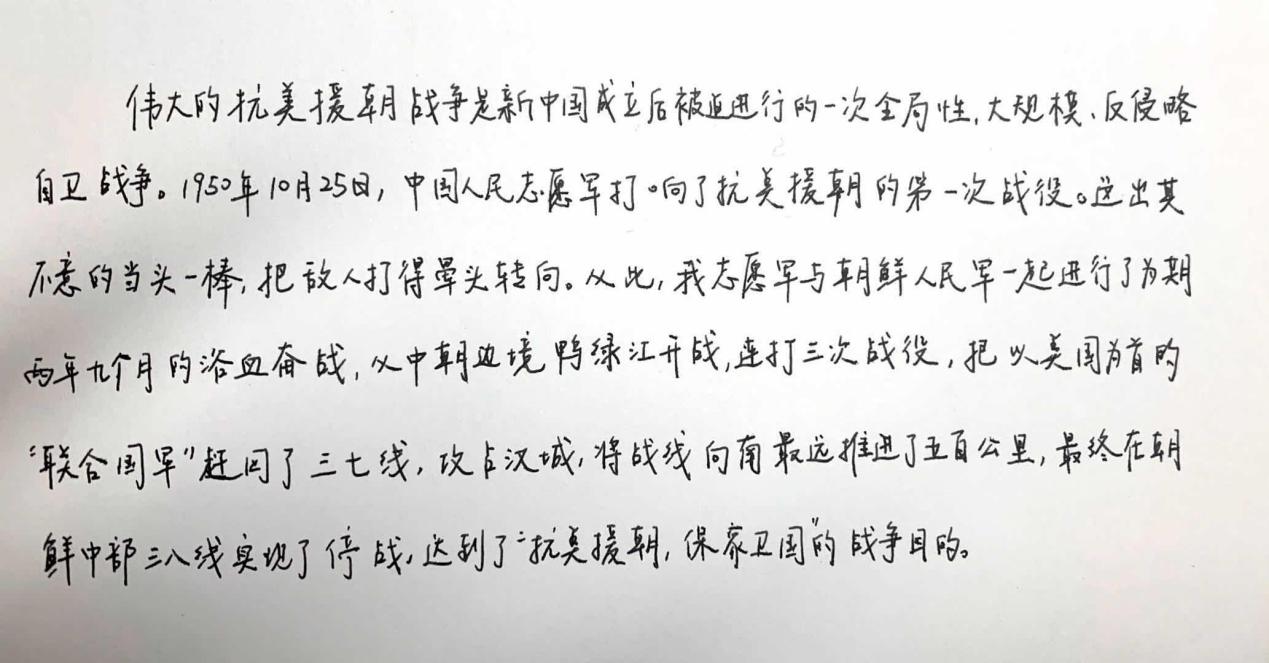 伟大的抗美援朝战争是新中国成立后被迫进行的一次全局性、大规模、反侵略
自卫战争。1950年10月25日，中国人民志愿军打响了抗美援朝的第一次战役。这出其
不意的当头一棒，把敌人打得晕头转向。从此，我志愿军与朝鲜人民军一起进行了为期
两年九个月的浴血奋战，从中朝边境鸭绿江开战，连打三次战役，把以美国为首的
“联合国军”赶回了三七线，攻占汉城，将战线向南最远推进了五百公里，最终在朝
鲜中部三八线实现了停战，达到了“抗美援朝，保家卫国”的战争目的。